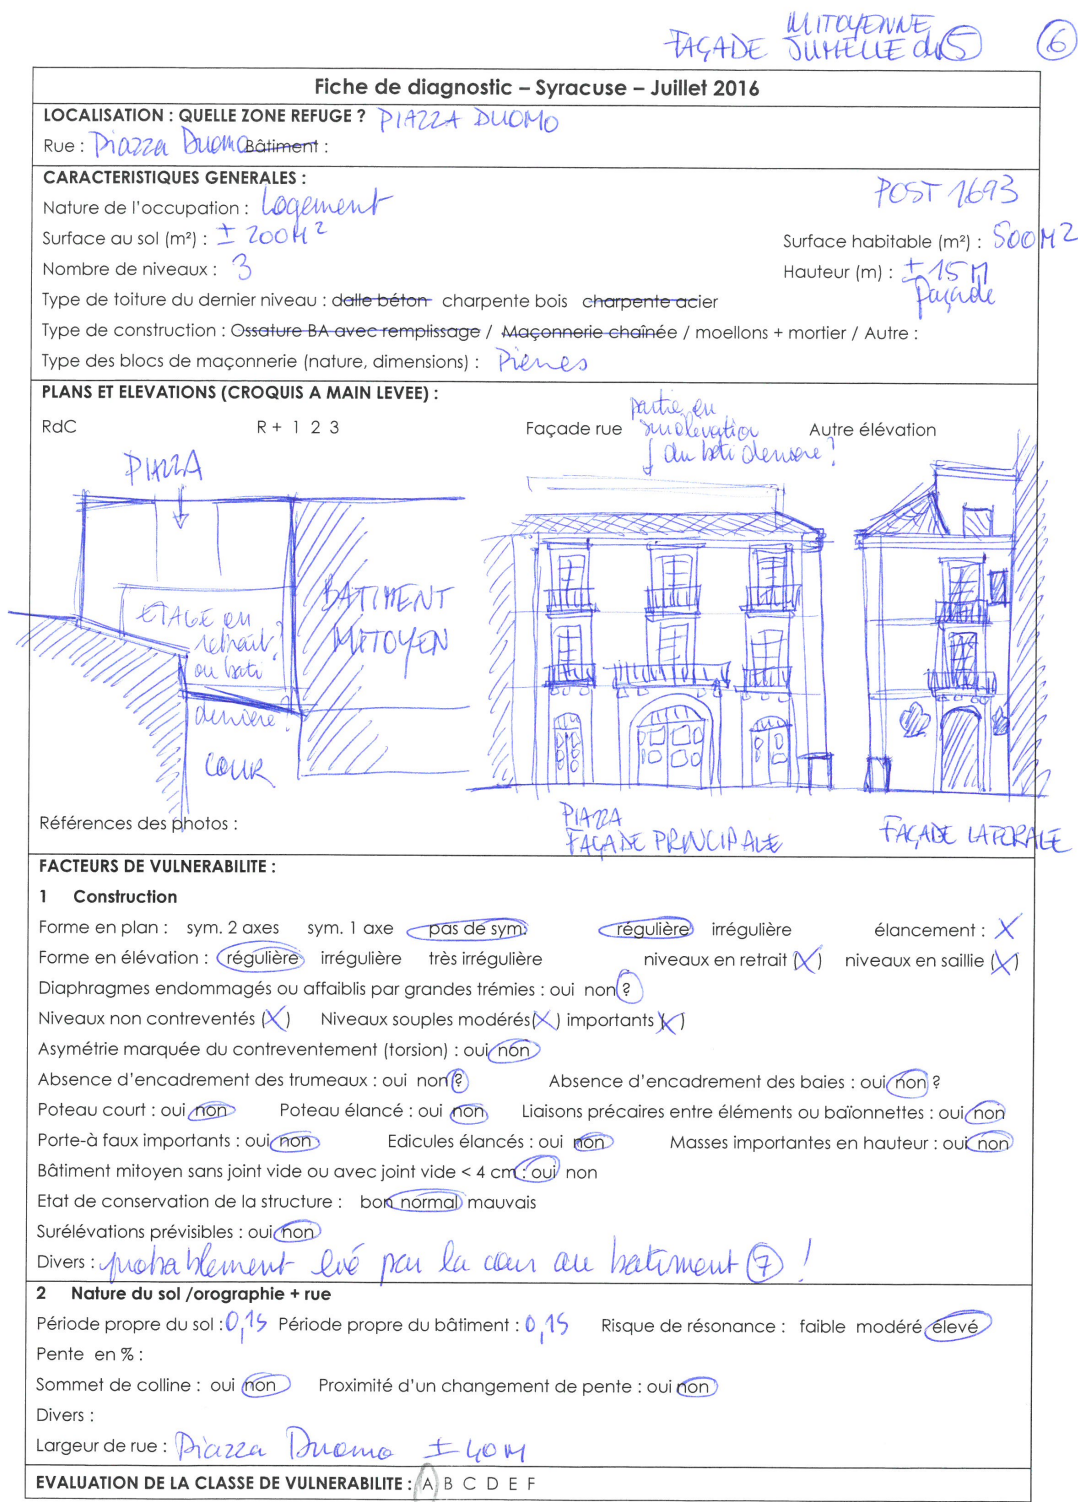 MITOYENNE
FAÇADE JUMELLE du 5 6
Fiche de diagnostic – Syracuse – Juillet 2016
LOCALISATION : QUELLE ZONE REFUGE ? PIAZZA DUOMO
Rue : Piazza Duomo Bâtiment :
CARACTERISTIQUES GENERALES :
POST 1693
Nature de l'occupation : Logement
Surface au sol (m²) : ± 200 M² Surface habitable (m²) : 500 M2
Nombre de niveaux : 3 Hauteur (m) : ± 15 M
façade
Type de toiture du dernier niveau : dalle béton charpente bois charpente acier
Type de construction : Ossature BA avec remplissage / Maçonnerie chaînée / moellons + mortier / Autre :
Type des blocs de maçonnerie (nature, dimensions) : Pierres
PLANS ET ELEVATIONS (CROQUIS A MAIN LEVEE) :
RdC R + 1 2 3 Façade rue Autre élévation
partie en
surélévation
du bati derriere ?
PIAZZA
ETAGE en
retrait ?
ou bati
derriere ?
COUR
BATIMENT
MITOYEN
Références des photos :
PIAZZA
FAÇADE PRINCIPALE
FAÇADE LATERALE
FACTEURS DE VULNERABILITE :
1 Construction
Forme en plan : sym. 2 axes sym. 1 axe pas de sym. régulière irrégulière élancement : X
Forme en élévation : régulière irrégulière très irrégulière niveaux en retrait (X) niveaux en saillie (X)
Diaphragmes endommagés ou affaiblis par grandes trémies : oui non ?
Niveaux non contreventés (X) Niveaux souples modérés (X) importants (X)
Asymétrie marquée du contreventement (torsion) : oui non
Absence d'encadrement des trumeaux : oui non ? Absence d'encadrement des baies : oui non ?
Poteau court : oui non Poteau élancé : oui non Liaisons précaires entre éléments ou baïonnettes : oui non
Porte-à faux importants : oui non Edicules élancés : oui non Masses importantes en hauteur : oui non
Bâtiment mitoyen sans joint vide ou avec joint vide < 4 cm : oui non
Etat de conservation de la structure : bon normal mauvais
Surélévations prévisibles : oui non
Divers : probablement lié par la cour au batiment 7 !
2 Nature du sol /orographie + rue
Période propre du sol : 0,15 Période propre du bâtiment : 0,15 Risque de résonance : faible modéré élevé
Pente en % :
Sommet de colline : oui non Proximité d'un changement de pente : oui non
Divers :
Largeur de rue : Piazza Duomo ± 40 M
EVALUATION DE LA CLASSE DE VULNERABILITE : A B C D E F